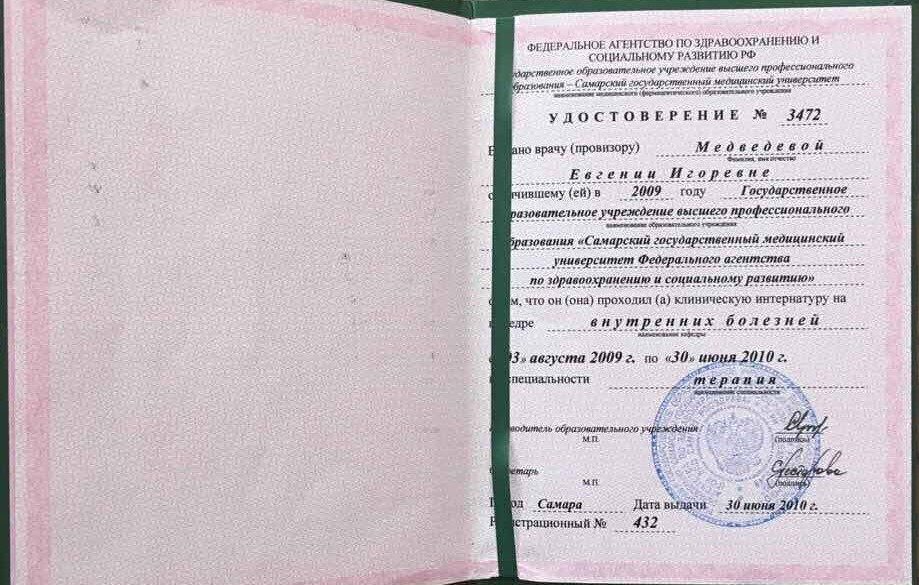 ФЕДЕРАЛЬНОЕ АГЕНТСТВО ПО ЗДРАВООХРАНЕНИЮ И
СОЦИАЛЬНОМУ РАЗВИТИЮ РФ
ударственное образовательное учреждение высшего профессионального
бразования – Самарский государственный медицинский университет
наименование медицинского (фармацевтического) образовательного учреждения
УДОСТОВЕРЕНИЕ № 3472
ано врачу (провизору) Медведевой
Фамилия, имя отчество
Евгении Игоревне
чившему (ей) в 2009 году Государственное
разовательное учреждение высшего профессионального
наименование образовательного учреждения
бразования «Самарский государственный медицинский
университет Федерального агентства
по здравоохранению и социальному развитию»
м, что он (она) проходил (а) клиническую интернатуру на
едре внутренних болезней
наименование кафедры
«03» августа 2009 г. по «30» июня 2010 г.
специальности терапия
наименование специальности
водитель образовательного учреждения
М.П. (подпись)
етарь
М.П. (подпись)
од Самара Дата выдачи 30 июня 2010 г.
Р истрационный № 432